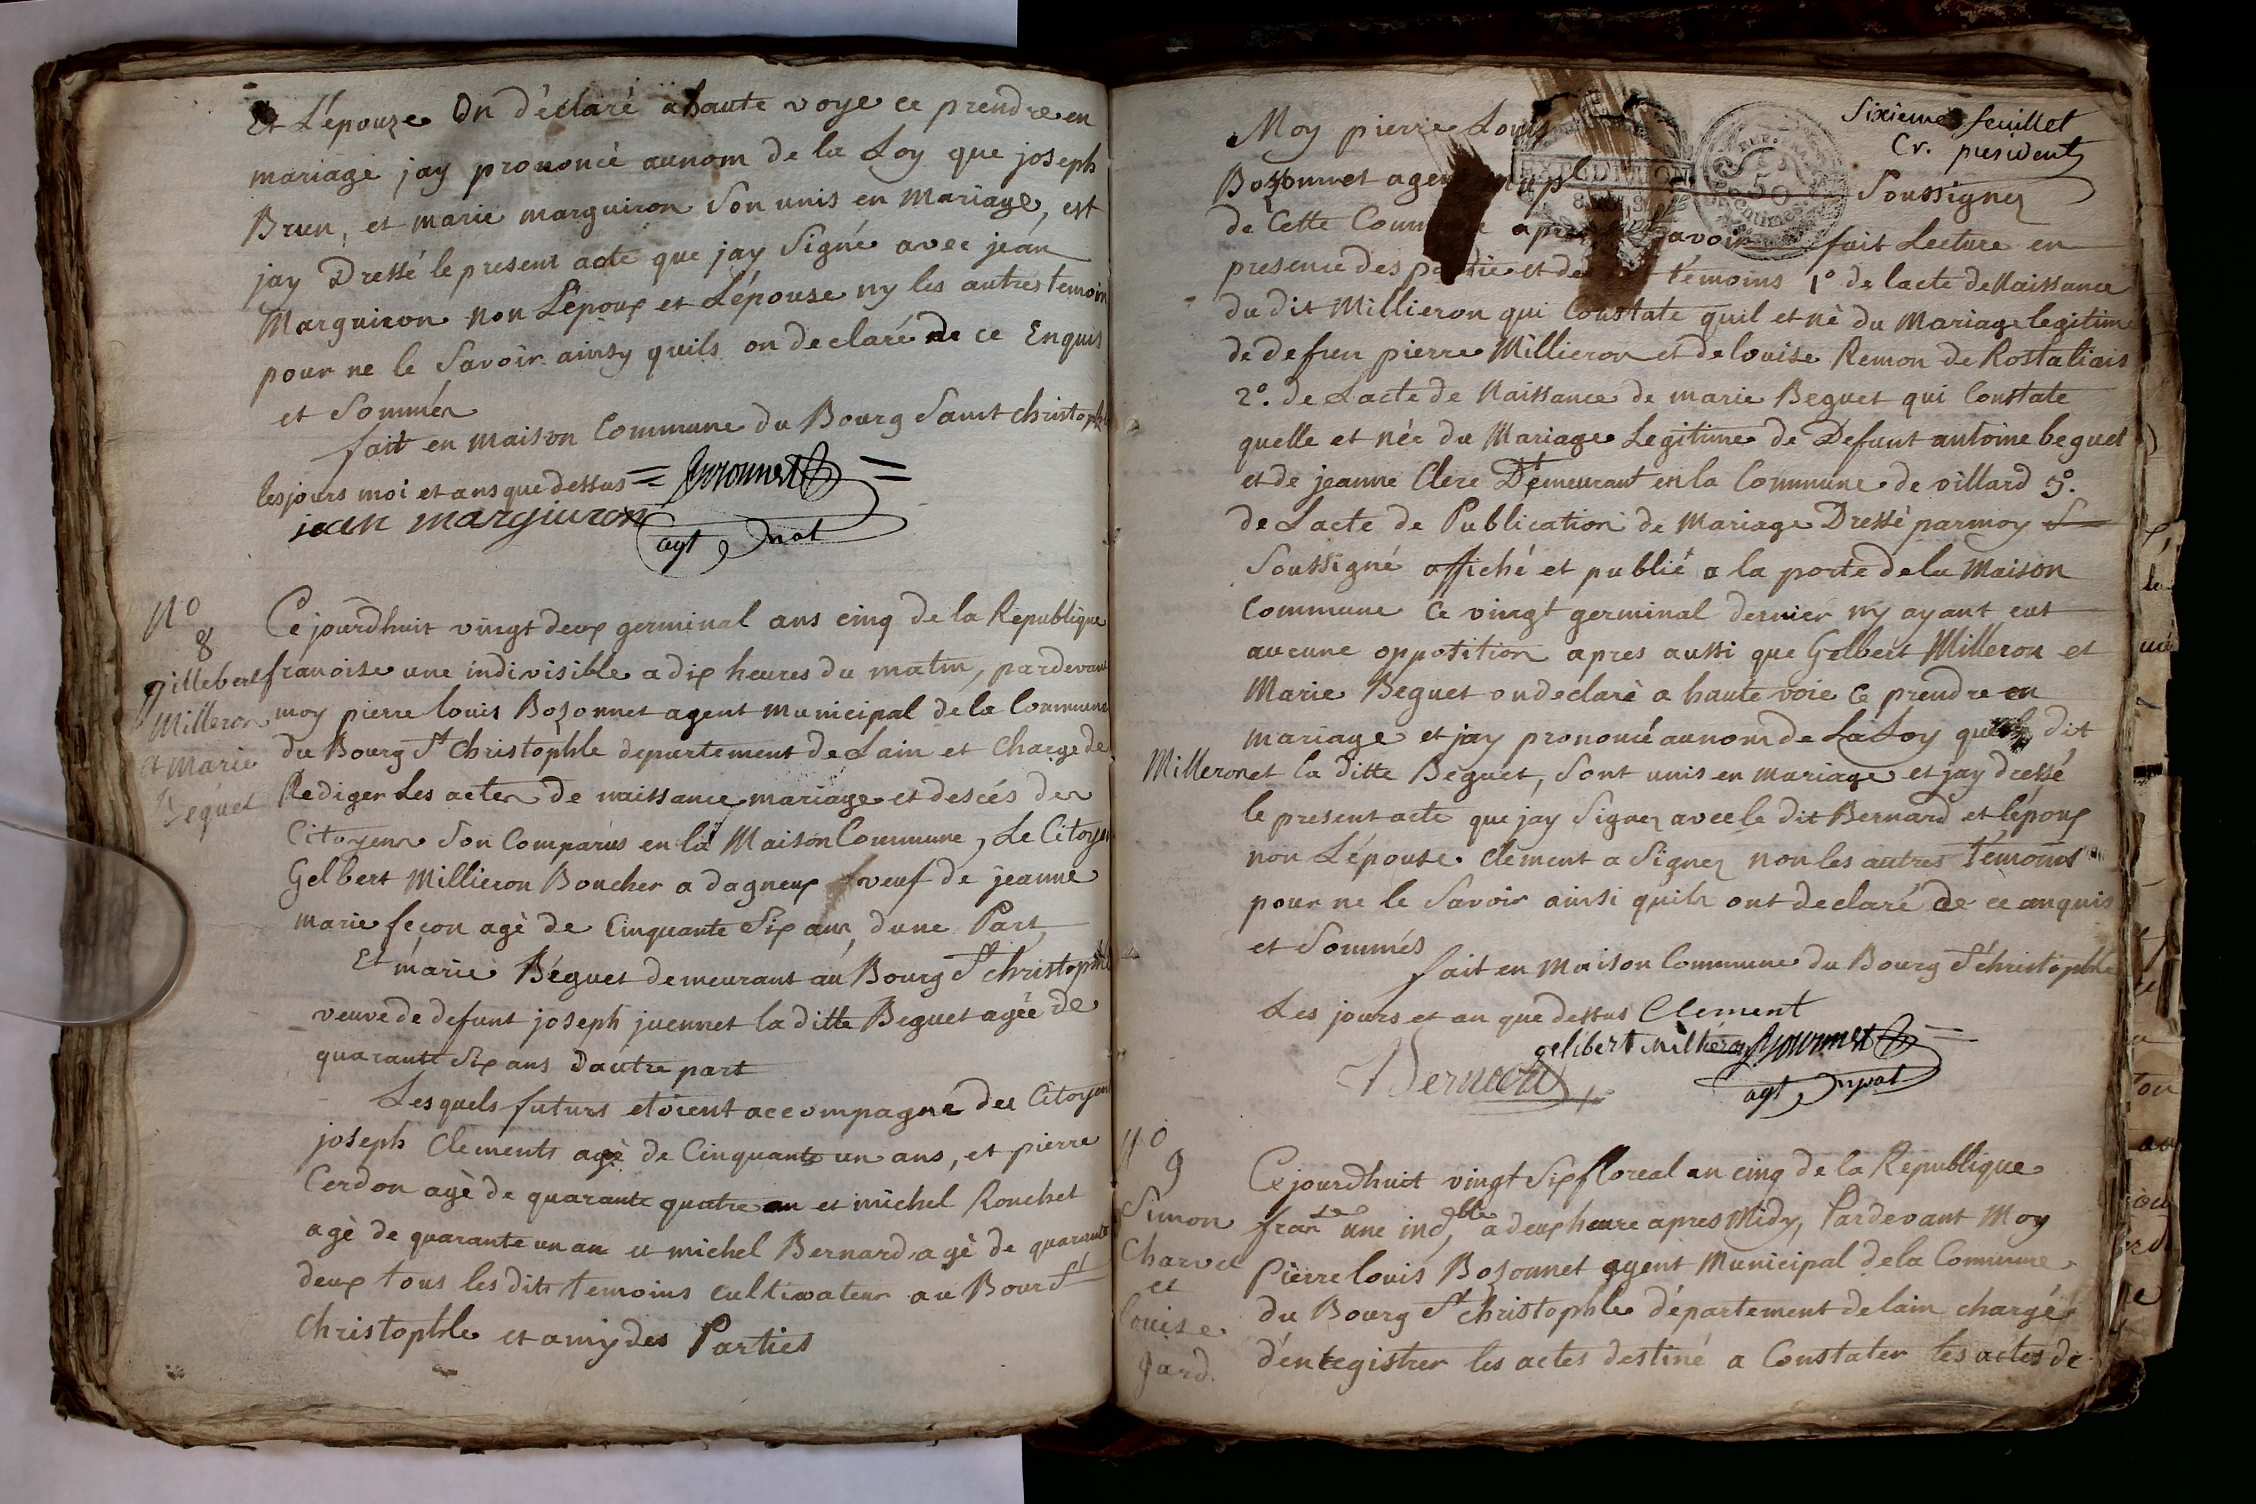 Et L'épouze On déclaré a haute voye ce prendre en
mariage jay prononcé aunom de la Loy que joseph
Brun, et marie marguiron Son unis en Mariage, est
jay Dressé le present acte que jay Signé avec jean
Marguiron non L'époux et L'épouse ny les autres temoin
pour ne le Savoir ainsy quils on declaré de ce Enquis
et Sommés
fait en maison Commune du Bourg Saint christophle
les jours moi et ans que dessus = Bozonnet =
jean marguiron
agt
N°
8
gillebert
Milleron
et Marie
Béguet
Ce jourdhuit vingt deux germinal ans cinq de la Republique
franoise une indivisible a dix heures du matin, pardevant
moy pierre louis Bozonnet agent municipal de la Commune
du Bourg St Christophle departement de Lain et Charge de
Rediger Les actes de naissance mariage et descés des
Citoyens Son Comparus en la Maison Commune, Le Citoyen
Gelbert Millieron Boucher a dagneux veuf de jeanne
marie feçon agè de Cinquante Six ans, dune Part
Et marie Béguet demeurant au Bourg St christophle
veuve de defunt joseph juennet la ditte Beguet agée de
quarante Six ans dautre part
Lesquels futurs etoient accompagné des Citoyens
joseph Clements agé de Cinquante un ans, et pierre
Cerdon agè de quarante quatre an et michel Ronchet
agè de quarante un an et michel Bernard agè de quarante
deux tous les dits temoins cultivateur au Bour St
Christophle et amiy des Parties
Sixieme feuillet
Cr. president
Moy pierre Louis
Bozonnet agent Soussignez
EXPEDITION
REP. FRA.
50
centimes
de Cette Commune apres avoir fait Lecture en
presence des partie et de temoins 1° de lacte de Naissance
du dit Millieron qui Constate quil et né du Mariage legitime
de defun pierre Millieron et de louise Remon de Rostaliais
2°. de Lacte de Naissance de marie Beguet qui Constate
quelle et née du Mariage Legitime de Defunt antoine beguet
et de jeanne Clerc Demeurant en la Commune de villard 3°.
de Lacte de Publication de Mariage Dressé par moy
Soussigné affiché et publié a la porte de la Maison
Commune Ce vingt germinal dernier ny ayant eut
aucune oppotition apres aussi que Gelbert Milleron et
Marie Beguet on declaré a haute voie Ce prendre en
mariage et jay prononcé aunom de La Loy que le dit
Milleron et la ditte Beguet, Sont unis en mariage et jay dressé
le present acte que jay Signez avec le dit Bernard et lépoux
non L'épouse Clement a Signez non les autres Témoins
pour ne le Savoir ainsi quils ont declaré de ce anquis
et Sommés
fait en Maison Commune du Bourg St christophle
Les jours et an que dessus Clement
gelibert millieron Bozonnet =
Bernard
agt
N°
9
Simon
Charvet
et
louise
gard.
Ce jourdhuit vingt Six floreal an cinq de la Republique
franse une indble a deux heure apres Midy, Pardevant Moy
Pierre louis Bozonnet agent Municipal de la Commune
du Bourg St Christophle département de lain chargé
d'énregistrer les actes destiné a Constater les actes de